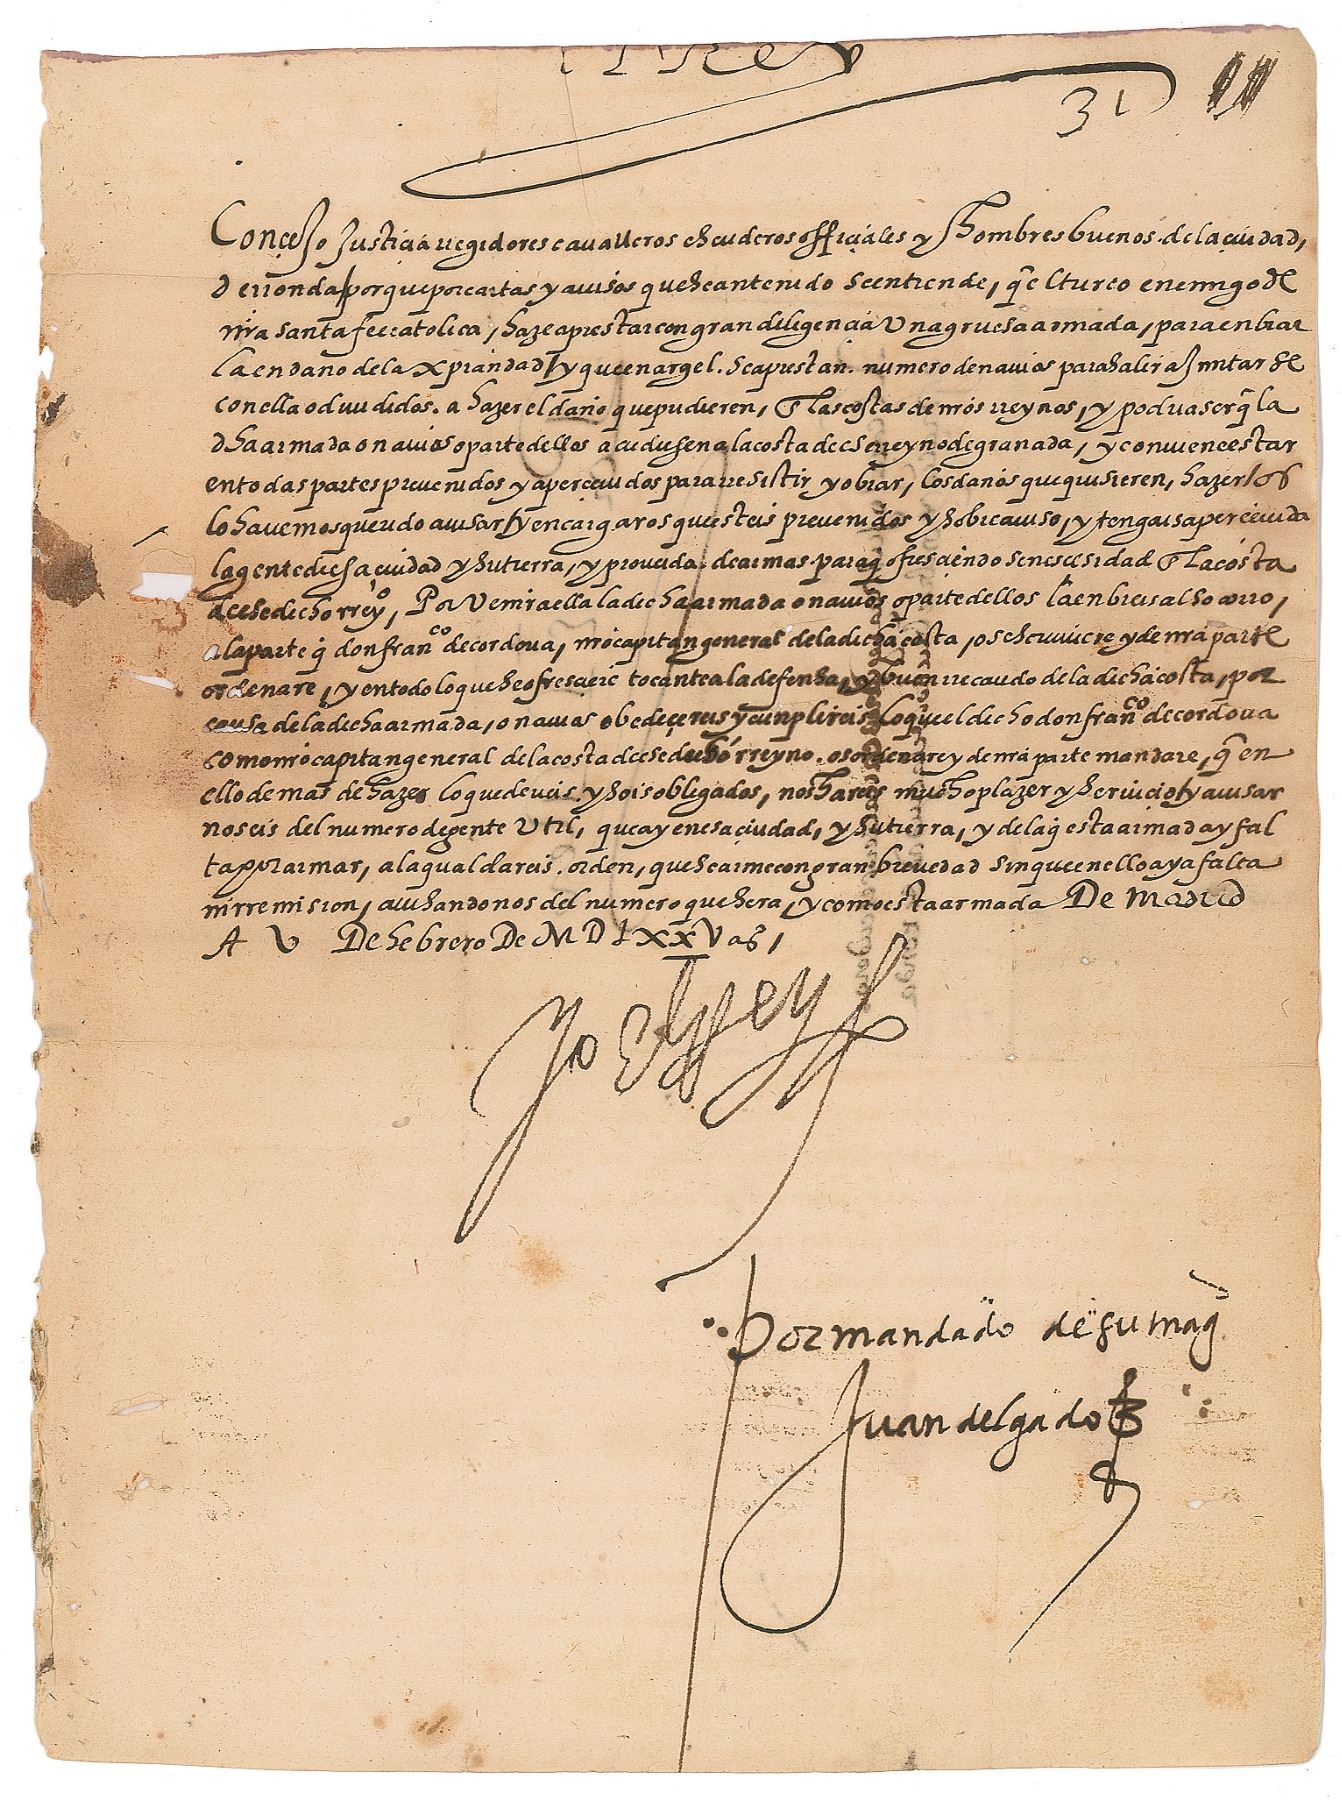 El Rey
31
Concejo Justicia regidores cavalleros escuderos officiales y Hombres buenos de la ciudad,
de rronda / porque por cartas y avisos que se an tenido se entiende, q̃ el turco enemigo de
nr̃a santa fee catolica, haze aprestar con gran diligencia Una gruesa armada, para enbiar
la en daño de la xpiandad / y que en argel. se aprestan. numero de navios para salir a Juntar se
con ella o dividides. a hazer el daño que pudieren, en las costas de nr̃os rreynos, y podria ser q̃ la
dha armada o navios o parte dellos acudiesen a la costa de ese rreyno de granada, y conviene estar
en todas partes prevenidos y aperçevidos para rresistir y obiar, los daños que quisieren, hazer / os
lo havemos querido avisar / y encargaros que esteis prevenidos y sobre aviso, y tengais aperceivida
la gente de esa ciudad y su tierra, y proveida. de armas. para q̃ ofresciendose nescesidad en la costa
de ese dicho rreyº, Por Venir a ella la dicha armada o navios o parte dellos la enbieis al socorro,
a la parte q̃ don franco de cordova, nr̃o capitan general de la dicha costa, os escriviere y de nr̃a parte
ordenare, y en todo lo que se ofresciere tocante a la defensa, y buen rrecaudo de la dicha costa, por
causa de la dicha armada, o navios obedeçereis y cunplireis lo que el dicho don franco de cordova
como nr̃o capitan general de la costa de ese dicho rreyno. os ordenare y de nr̃a parte mandare, q̃ en
ello demas de hazer lo que deveis. y sois obligados, nos hareis mucho plazer y servicio / y avisar
nos eis del numero de gente Util, que ay en esa ciudad, y su tierra, y de la q̃ esta armada y fal
ta por armar, a la qual dareis. orden, que se arme con gran brevedad sin que en ello aya falta
ni rremision, avisandonos del numero que sera, y como esta armada De Madrid
A V De hebrero De M D LXXV aºs,
Yo El Rey
Por mandado de su magd
Juan delgado